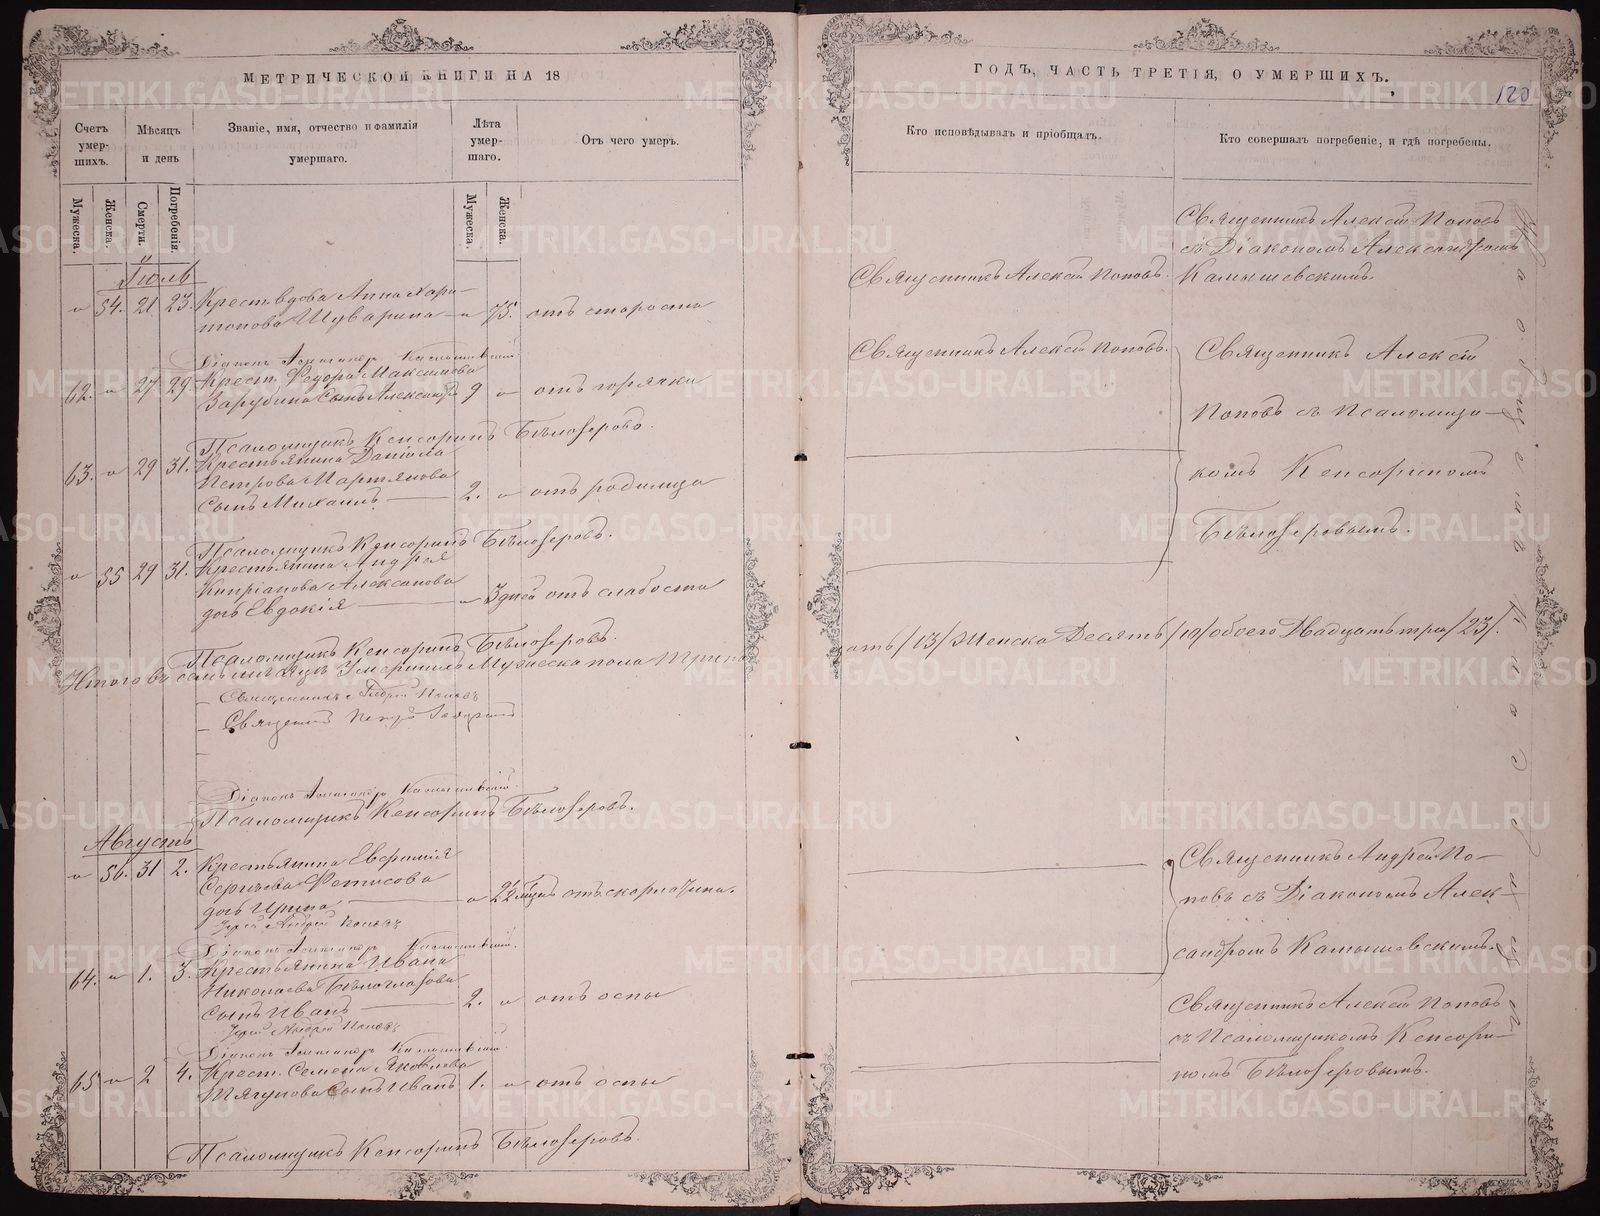 МЕТРИЧЕСКОЙ КНИГИ НА 18
Счетъ умер-шихъ.
Мѣсяцъ и день
Званіе, имя, отчество и фамилія умершаго.
Лѣта умер-шаго.
Отъ чего умеръ.
Мужеска.
Женска.
Смерти.
Погребенія.
Мужеска.
Женска.
Іюль
54. 21 23. Крест. вдова Анна Хари-
тонова Шуварина 75. отъ старости
Діаконъ Александръ Камышевскій
62. 27 29 Крест. Ѳедора Максимова
Зарубина сынъ Александръ 9 отъ горячки
Псаломщикъ Кенсоринъ Бѣлозеровъ.
63. 29 31. Крестьянина Даніила
Петрова Мартьянова
сынъ Михаилъ 2. отъ родимца
Псаломщикъ Кенсоринъ Бѣлозеровъ.
55 29 31. Крестьянина Андрея
Кипріанова Алексанова
дочь Евдокія 3 дней отъ слабости
Псаломщикъ Кенсоринъ Бѣлозеровъ.
Итого въ семъ мѣсяцѣ умершихъ мужеска пола трина-
Священникъ Андрей Поповъ
Священникъ Петръ
Діаконъ Александръ Камышевскій
Псаломщикъ Кенсоринъ Бѣлозеровъ.
Августъ
56. 31 2. Крестьянина Евфимія
Сергѣева Фетисова
дочь Ирина отъ скарлатины.
Іерей Андрей Поповъ
Діаконъ Александръ Камышевскій.
64. 1. 3. Крестьянина Ивана
Николаева Бѣлоглазова
сынъ Иванъ 2. отъ оспы
Іерей Андрей Поповъ
Діаконъ Александръ Камышевскій.
65 2 4. Крест. Семена Яковлева
Шягунова сынъ Иванъ 1. отъ оспы
Псаломщикъ Кенсоринъ Бѣлозеровъ.
ГОДЪ, ЧАСТЬ ТРЕТІЯ, О УМЕРШИХЪ.
120
Кто исповѣдывалъ и пріобщалъ.
Кто совершалъ погребеніе, и гдѣ погребены.
Священникъ Алексій Поповъ
съ Діакономъ Александромъ
Священникъ Алексій Поповъ. Камышевскимъ.
Священникъ Алексій Поповъ. Священникъ Алексій
Поповъ съ Псаломщи-
комъ Кенсориномъ
Бѣлозеровымъ.
ать /13/ Женска Десять /10/ обоего Двадцать три /23/.
Священникъ Андрей По-
повъ съ Діакономъ Алек-
сандромъ Камышевскимъ.
Священникъ Алексій Поповъ
съ Псаломщикомъ Кенсори-
номъ Бѣлозеровымъ.
METRIKI.GASO-URAL.RU